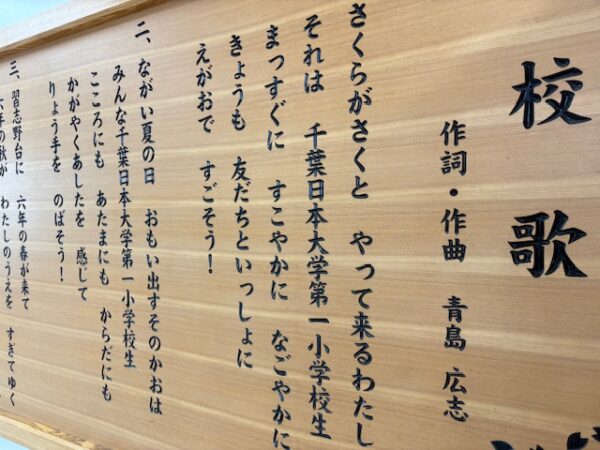 校歌
作詞・作曲 青島 広志
さくらがさくと やって来るわたし
それは 千葉日本大学第一小学校生
まっすぐに すこやかに なごやかに
きょうも 友だちといっしょに
えがおで すごそう！
二、ながい夏の日 おもい出すそのかおは
みんな千葉日本大学第一小学校生
こころにも あたまにも からだにも
かがやくあしたを 感じて
りょう手を のばそう！
三、習志野台に 六年の春が来て
六年の秋が わたしのうえを すぎてゆく